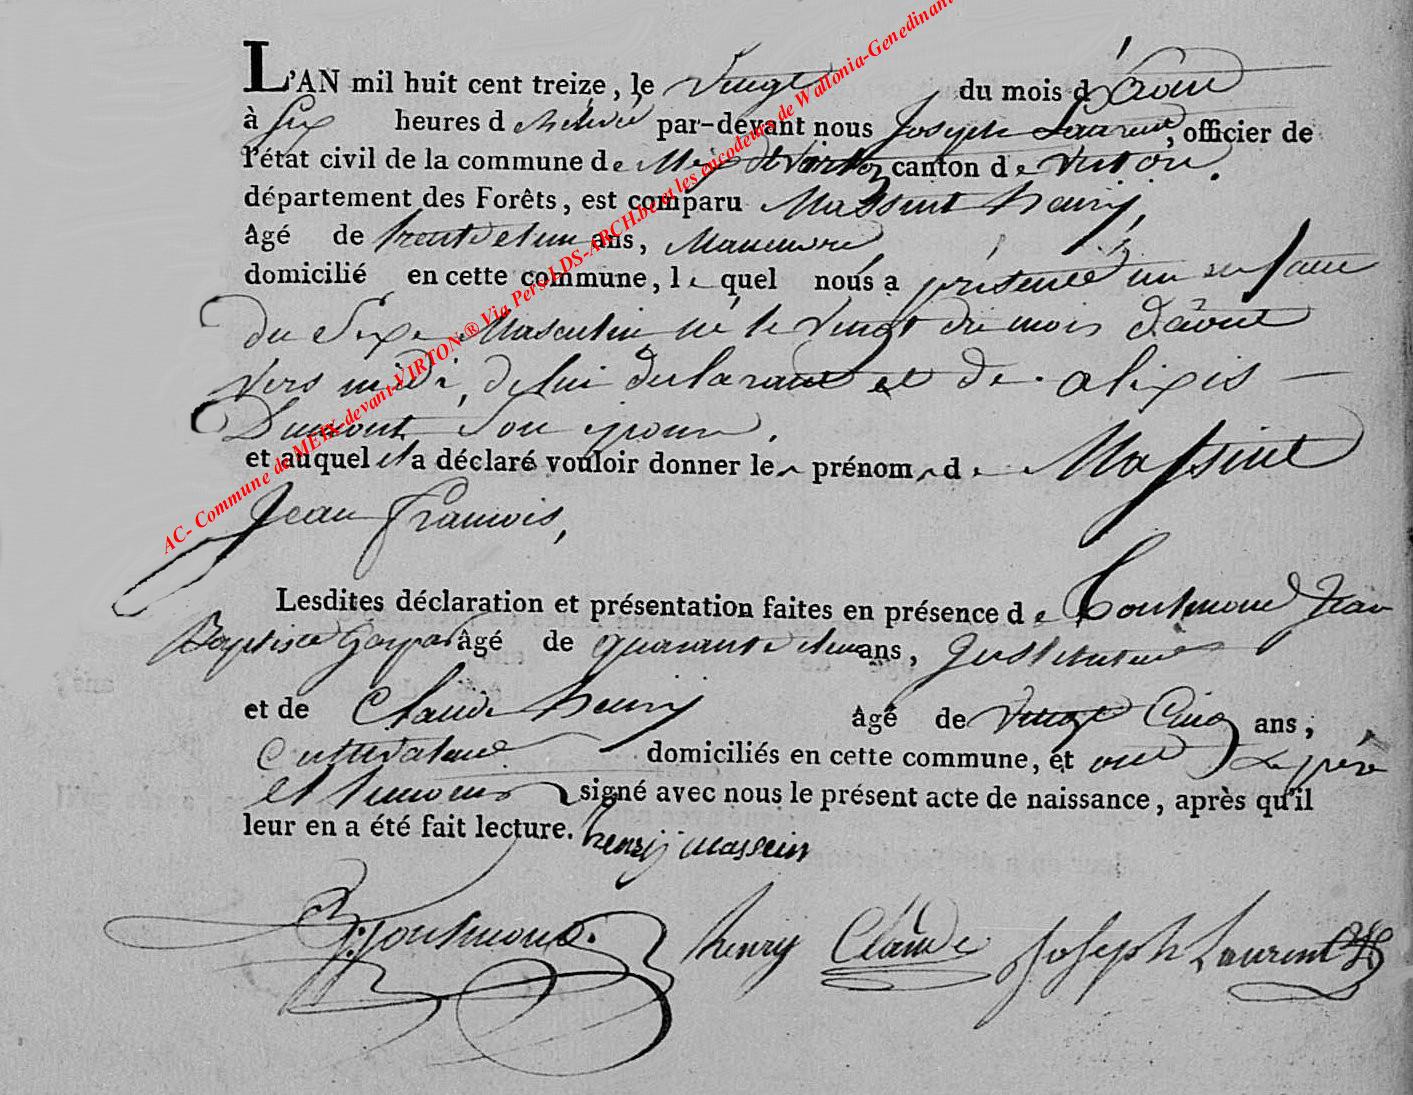 L'AN mil huit cent treize, le Vingt du mois d'Aout
à Six heures d relevée par-devant nous Joseph Laurent, officier de
l'état civil de la commune de Meix dt Virton canton de Virton.
département des Forêts, est comparu Massint henrÿ,
âgé de trente et un ans, Maneuvre
domicilié en cette commune, lequel nous a présenté un enfant
du Sexe Masculin né le Vingt du mois d'aout
vers midi, de lui declarant et de alixis
Dumont Son epouse.
et auquel il a déclaré vouloir donner les prénoms de Massint
Jean francois,
Lesdites déclaration et présentation faites en présence de Jean
Baptiste Gaspar âgé de quarante et un ans, Justituteur
et de Claude henrÿ âgé de Vingt Cinq ans;
Cultivateur domiciliés en cette commune, et ont Le père
et temoins signé avec nous le présent acte de naissance, après qu'il
leur en a été fait lecture. henrÿ massein
henry Claude Joseph Laurent
AC- Commune de MEIX-devant-VIRTON® Via Pers LDS-ARCH.be et les encodeurs de Wallonia-Genedinant